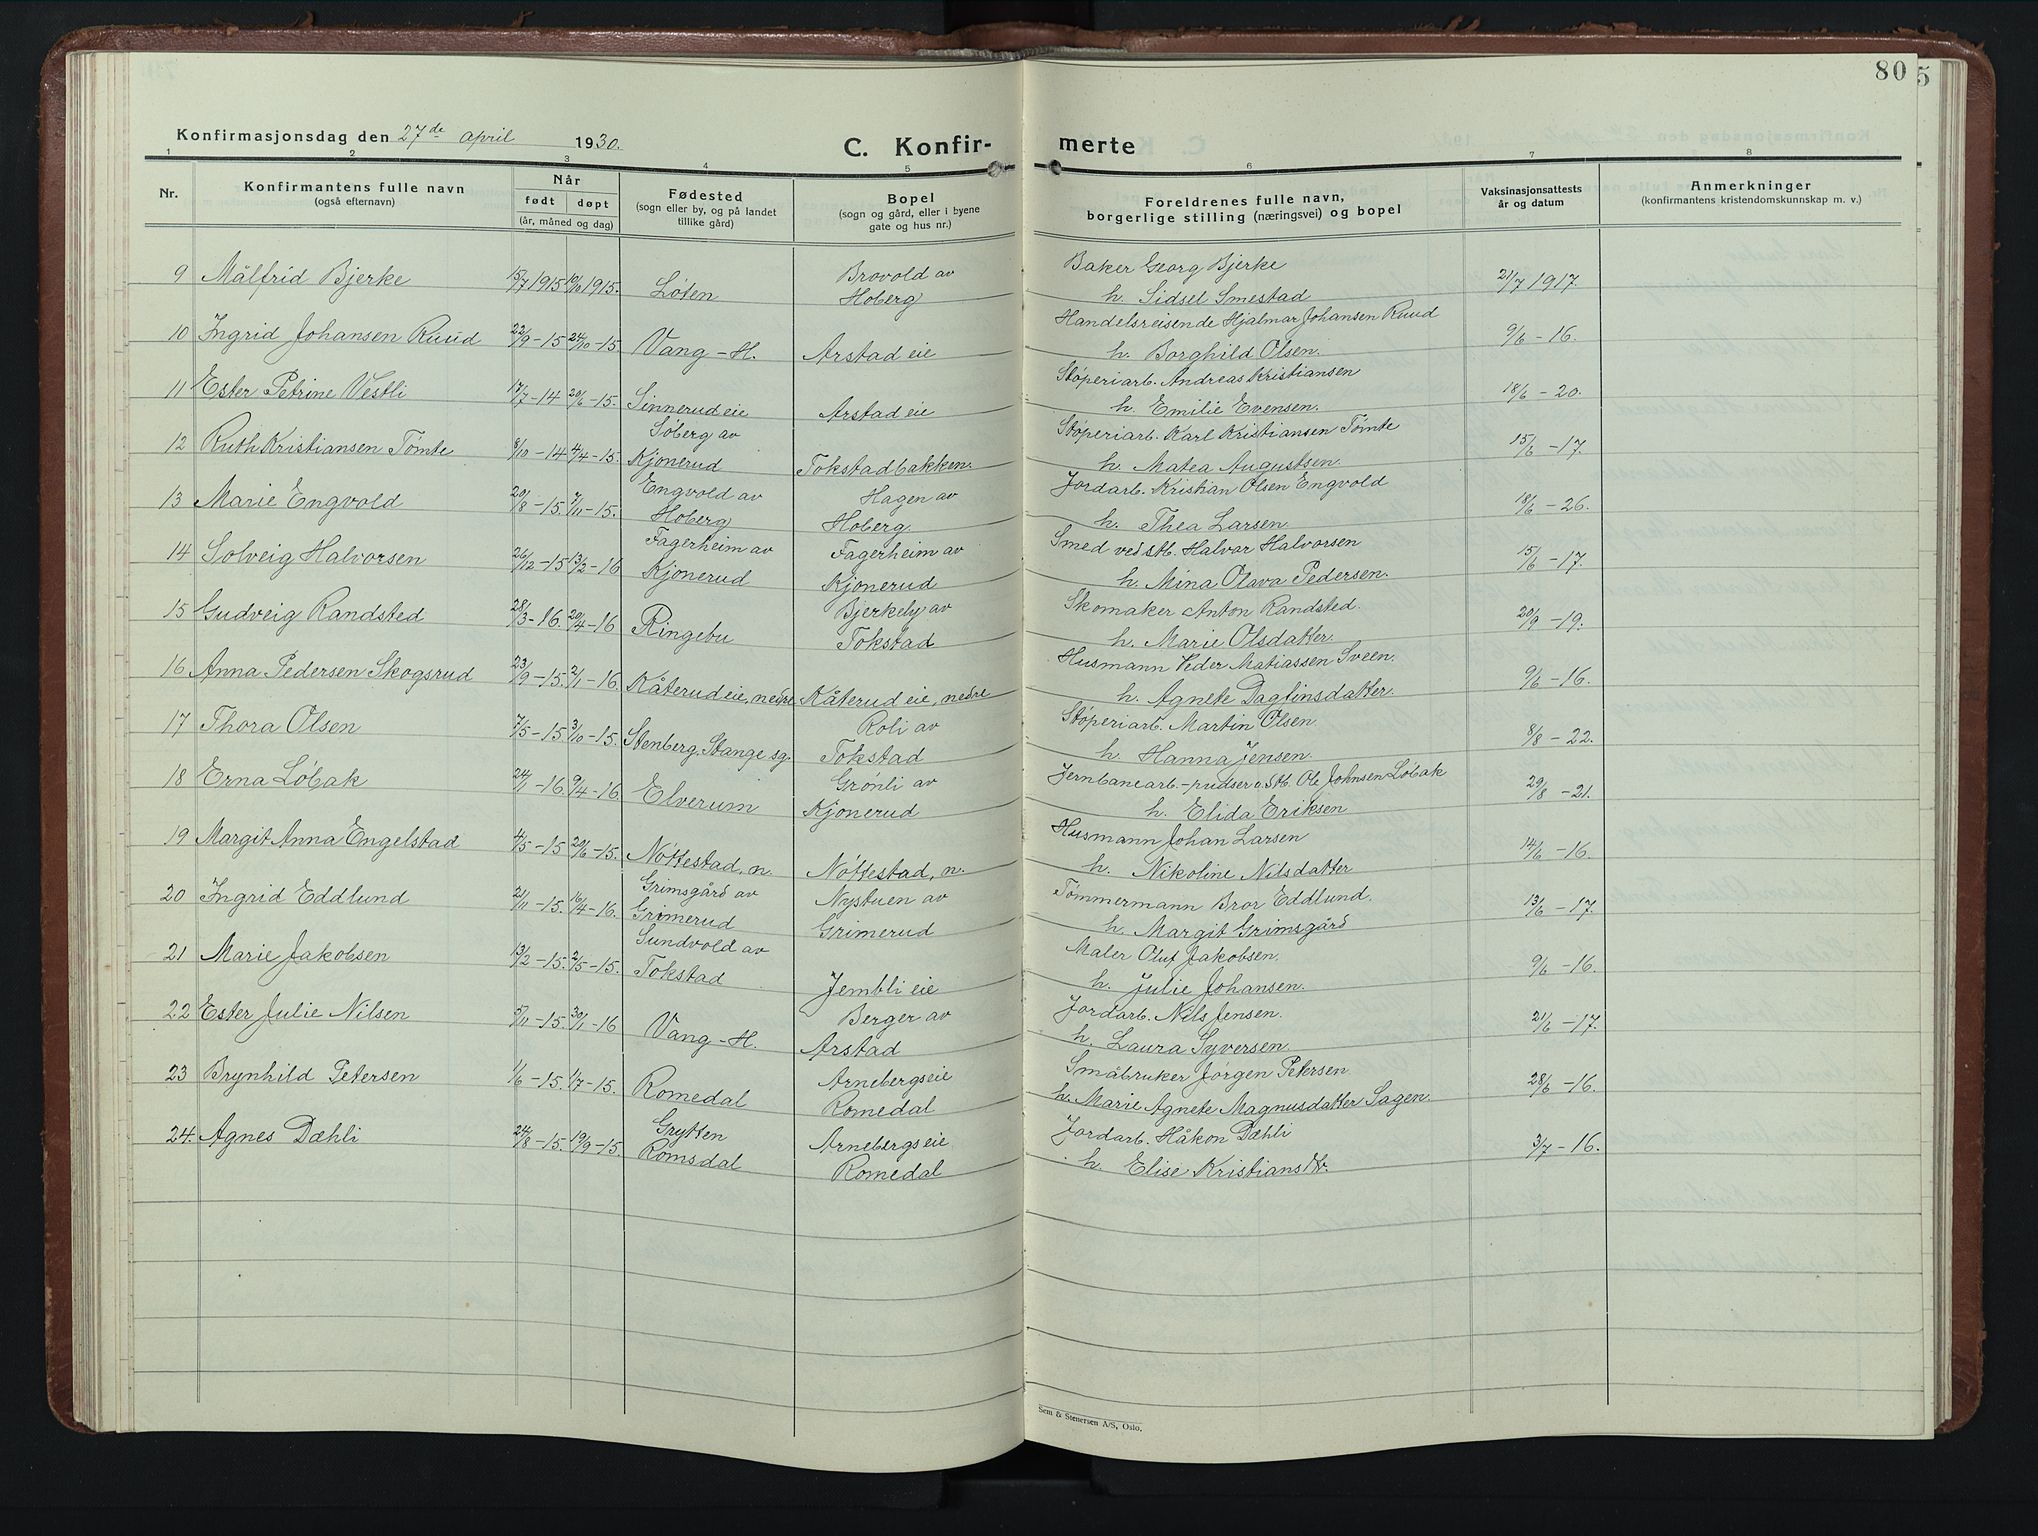 80
5
Konfirmasjonsdag den 27de april 1930.
C. Konfir-
merte
1 2 3 4 5 6 7 8
Nr.
Konfirmantens fulle navn
(også efternavn)
Når
født døpt
(år, måned og dag)
Fødested
(sogn eller by, og på landet
tillike gård)
Bopel
(sogn og gård, eller i byene
gate og hus nr.)
Foreldrenes fulle navn,
borgerlige stilling (næringsvei) og bopel
Vaksinasjonsattests
år og datum
Anmerkninger
(konfirmantens kristendomskunnskap m. v.)
9 Målfrid Bjerke 15/7 1915 10/10 1915. Løten Brovold av Hoberg Baker Georg Bjerke
h. Sidsel Smestad 21/7 1917.
10 Ingrid Johansen Ruud 22/9-15 24/10-15. Vang-H. Arstad eie Handelsreisende Hjalmar Johansen Ruud
h. Borghild Olsen. 9/6-16.
11 Ester Petrine Vestli 17/7-14 20/6-15. Sinnerud eie Arstad eie Støperiarb. Andreas Kristiansen
h. Emilie Evensen. 18/6-20.
12 Ruth Kristiansen Tømte 8/10-14 4/4-15. Søberg av Kjonerud Tokstadbakken. Støperiarb. Karl Kristiansen Tømte
h. Matea Augustsen. 15/6-17.
13 Marie Engvold 20/8-15. 7/11-15. Engvold av Hoberg Hagen av Hoberg. Jordarb. Kristian Olsen Engvold
h. Thea Larsen 18/6-26.
14 Solveig Halvorsen 26/12-15 13/2-16 Fagerheim av Kjonerud Fagerheim av Kjonerud Smed ved stb. Halvor Halvorsen
h. Mina Olava Pedersen. 15/6-17.
15 Gudveig Randsted 28/3-16. 20/4-16 Ringebu Bjerkely av Tokstad Skomaker Anton Randsted.
h. Marie Olsdatter. 20/9-19.
16 Anna Pedersen Skogsrud 23/9-15. 2/1-16. Kåterud eie, nedre Kåterud eie, nedre Husmann Peder Matiassen Sveen.
h. Agnete Dagfinsdatter. 9/6-16.
17 Thora Olsen 7/5-15 3/10-15. Stenberg. Stange sg. Roli av Tokstad Støperiarb. Martin Olsen
h. Hanna Jensen 8/8-22.
18 Erna Løbak 24/1-16. 9/4-16 Elverum Grønli av Kjonerud Jernbanearb.-pudser v. Stb. Ole Johnsen Løbak
h. Elida Eriksen 29/8-21.
19 Margit Anna Engelstad 4/5-15 20/6-15. Nøttestad, n. Nøttestad, n. Husmann Johan Larsen
h. Nikoline Nilsdatter 14/6-16.
20 Ingrid Eddlund 21/11-15. 16/4-16. Grimsgård av Grimerud Nystuen av Grimerud Tømmermann Bror Eddlund.
h. Margit Grimsgård 13/6-17.
21 Marie Jakobsen 13/2-15. 2/5-15. Sundvold av Tokstad Jembli eie Maler Oluf Jakobsen.
h. Julie Johansen. 9/6-16.
22 Ester Julie Nilsen 5/11-15. 30/1-16 Vang-H. Berger av Arstad Jordarb. Nils Jensen.
h. Laura Syversen. 21/6-17.
23 Brynhild Petersen 1/6-15. 1/7-15. Romedal Arnebergseie Romedal Småbruker Jørgen Petersen
h. Marie Agnete Magnusdatter Sagen. 28/6-16.
24. Agnes Dæhli 24/8-15. 19/9-15. Grytten Romsdal Arnebergseie Romedal Jordarb. Håkon Dæhli
h. Elise Kristiansdtr. 3/7-16.
Sem & Stenersen A/S, Oslo.